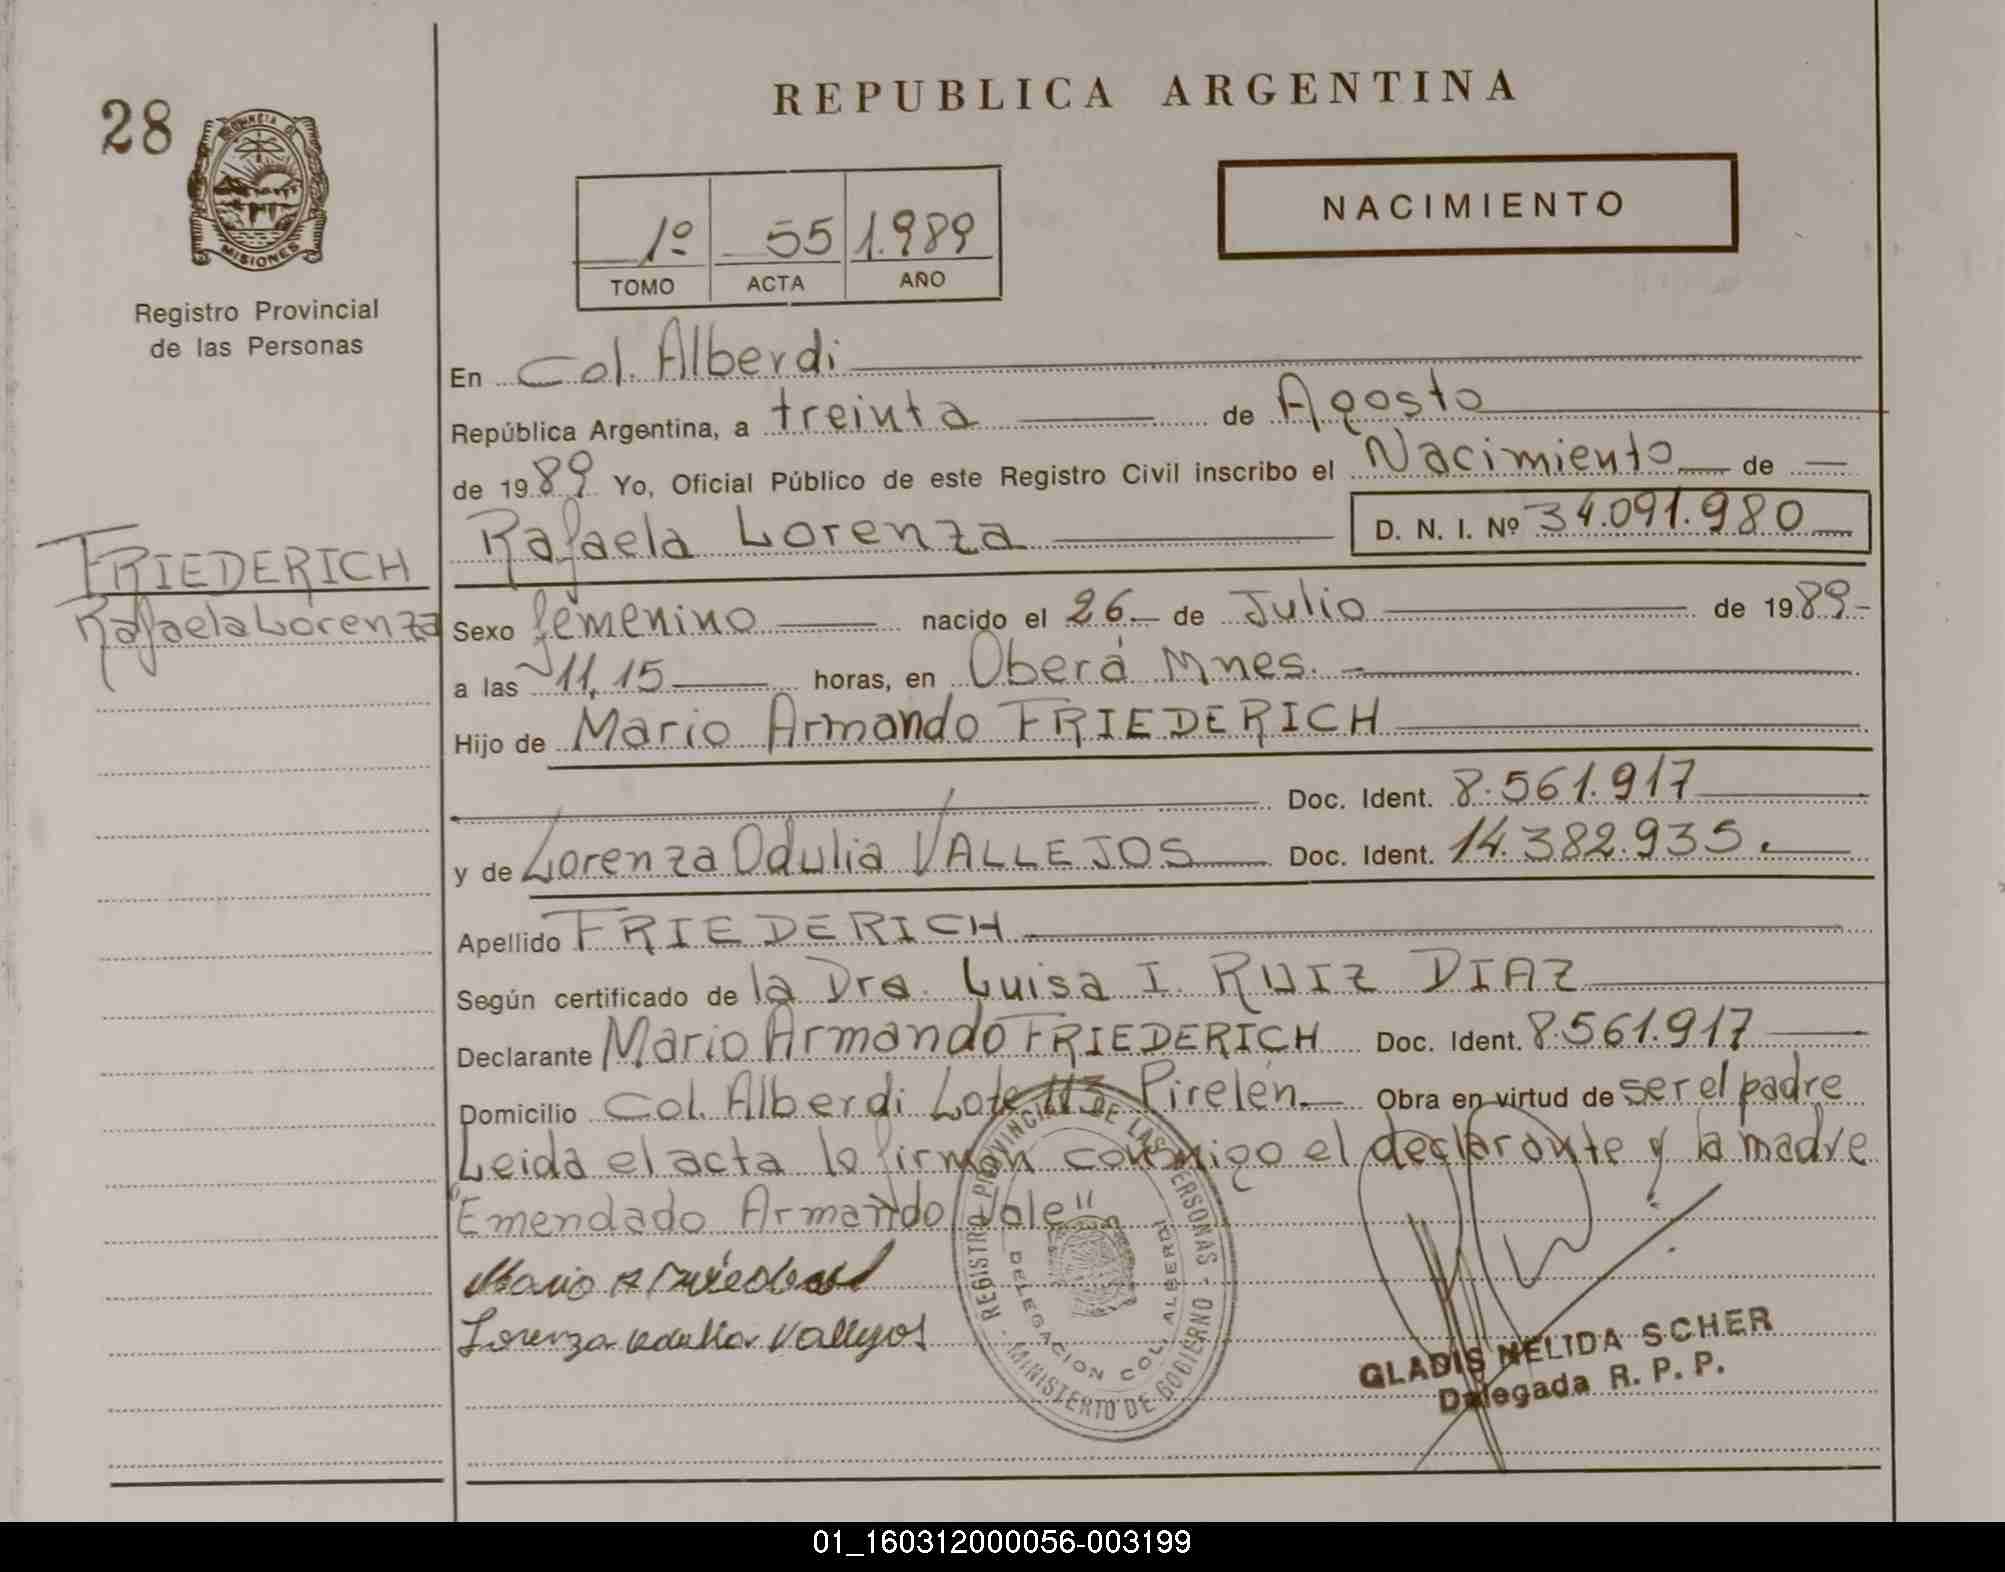 REPUBLICA ARGENTINA
28
PROVINCIA DE
MISIONES
Registro Provincial
de las Personas
NACIMIENTO
1º 55 1.989
TOMO ACTA AÑO
En Col. Alberdi
República Argentina, a treinta de Agosto
de 1989 Yo, Oficial Público de este Registro Civil inscribo el Nacimiento de
Rafaela Lorenza D. N. I. Nº 34.091.980
FRIEDERICH
Rafaela Lorenza
Sexo femenino nacido el 26 de Julio de 1989
a las 11,15 horas, en Oberá Mnes.
Hijo de Mario Armando FRIEDERICH
Doc. Ident. 8.561.917
y de Lorenza Odulia VALLEJOS Doc. Ident. 14.382.935.
Apellido FRIEDERICH
Según certificado de la Dra. Luisa I. RUIZ DIAZ
Declarante Mario Armando FRIEDERICH Doc. Ident. 8.561.917
Domicilio Col. Alberdi Lote 113 Pirelén Obra en virtud de ser el padre
Leida el acta lo firman conmigo el declarante y la madre
"Emendado Armando Vale"
Mario A
Lorenza Odulia Vallejos
REGISTRO PROVINCIAL DE LAS PERSONAS - MINISTERIO DE GOBIERNO -
DELEGACION COL. ALBERDI
GLADIS NELIDA SCHER
Delegada R. P. P.
01_160312000056-003199